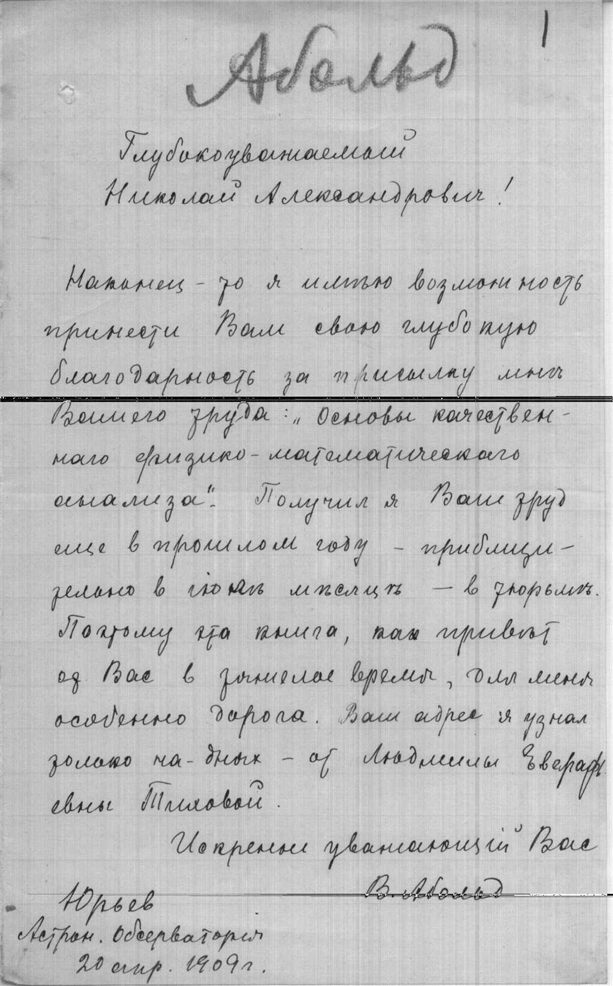 1
Абольд
Глубокоуважаемый
Николай Александрович!
Наконец-то я имѣю возможность
принести Вам свою глубокую
благодарность за присылку мнѣ
Вашего труда: „Основы качествен-
наго физико-математическаго
анализа". Получил я Ваш труд
еще в прошлом году – приблизи-
тельно в іюлѣ мѣсяцѣ – в тюрьмѣ.
Поэтому эта книга, как привѣт
от Вас в тяжелое время, для меня
особенно дорога. Ваш адрес я узнал
только на-днях – от Людмилы Евграф
евны Тиховой.
Искренно уважающій Вас
В. Абольд
Юрьев
Астрон. Обсерваторія
20 апр. 1909 г.